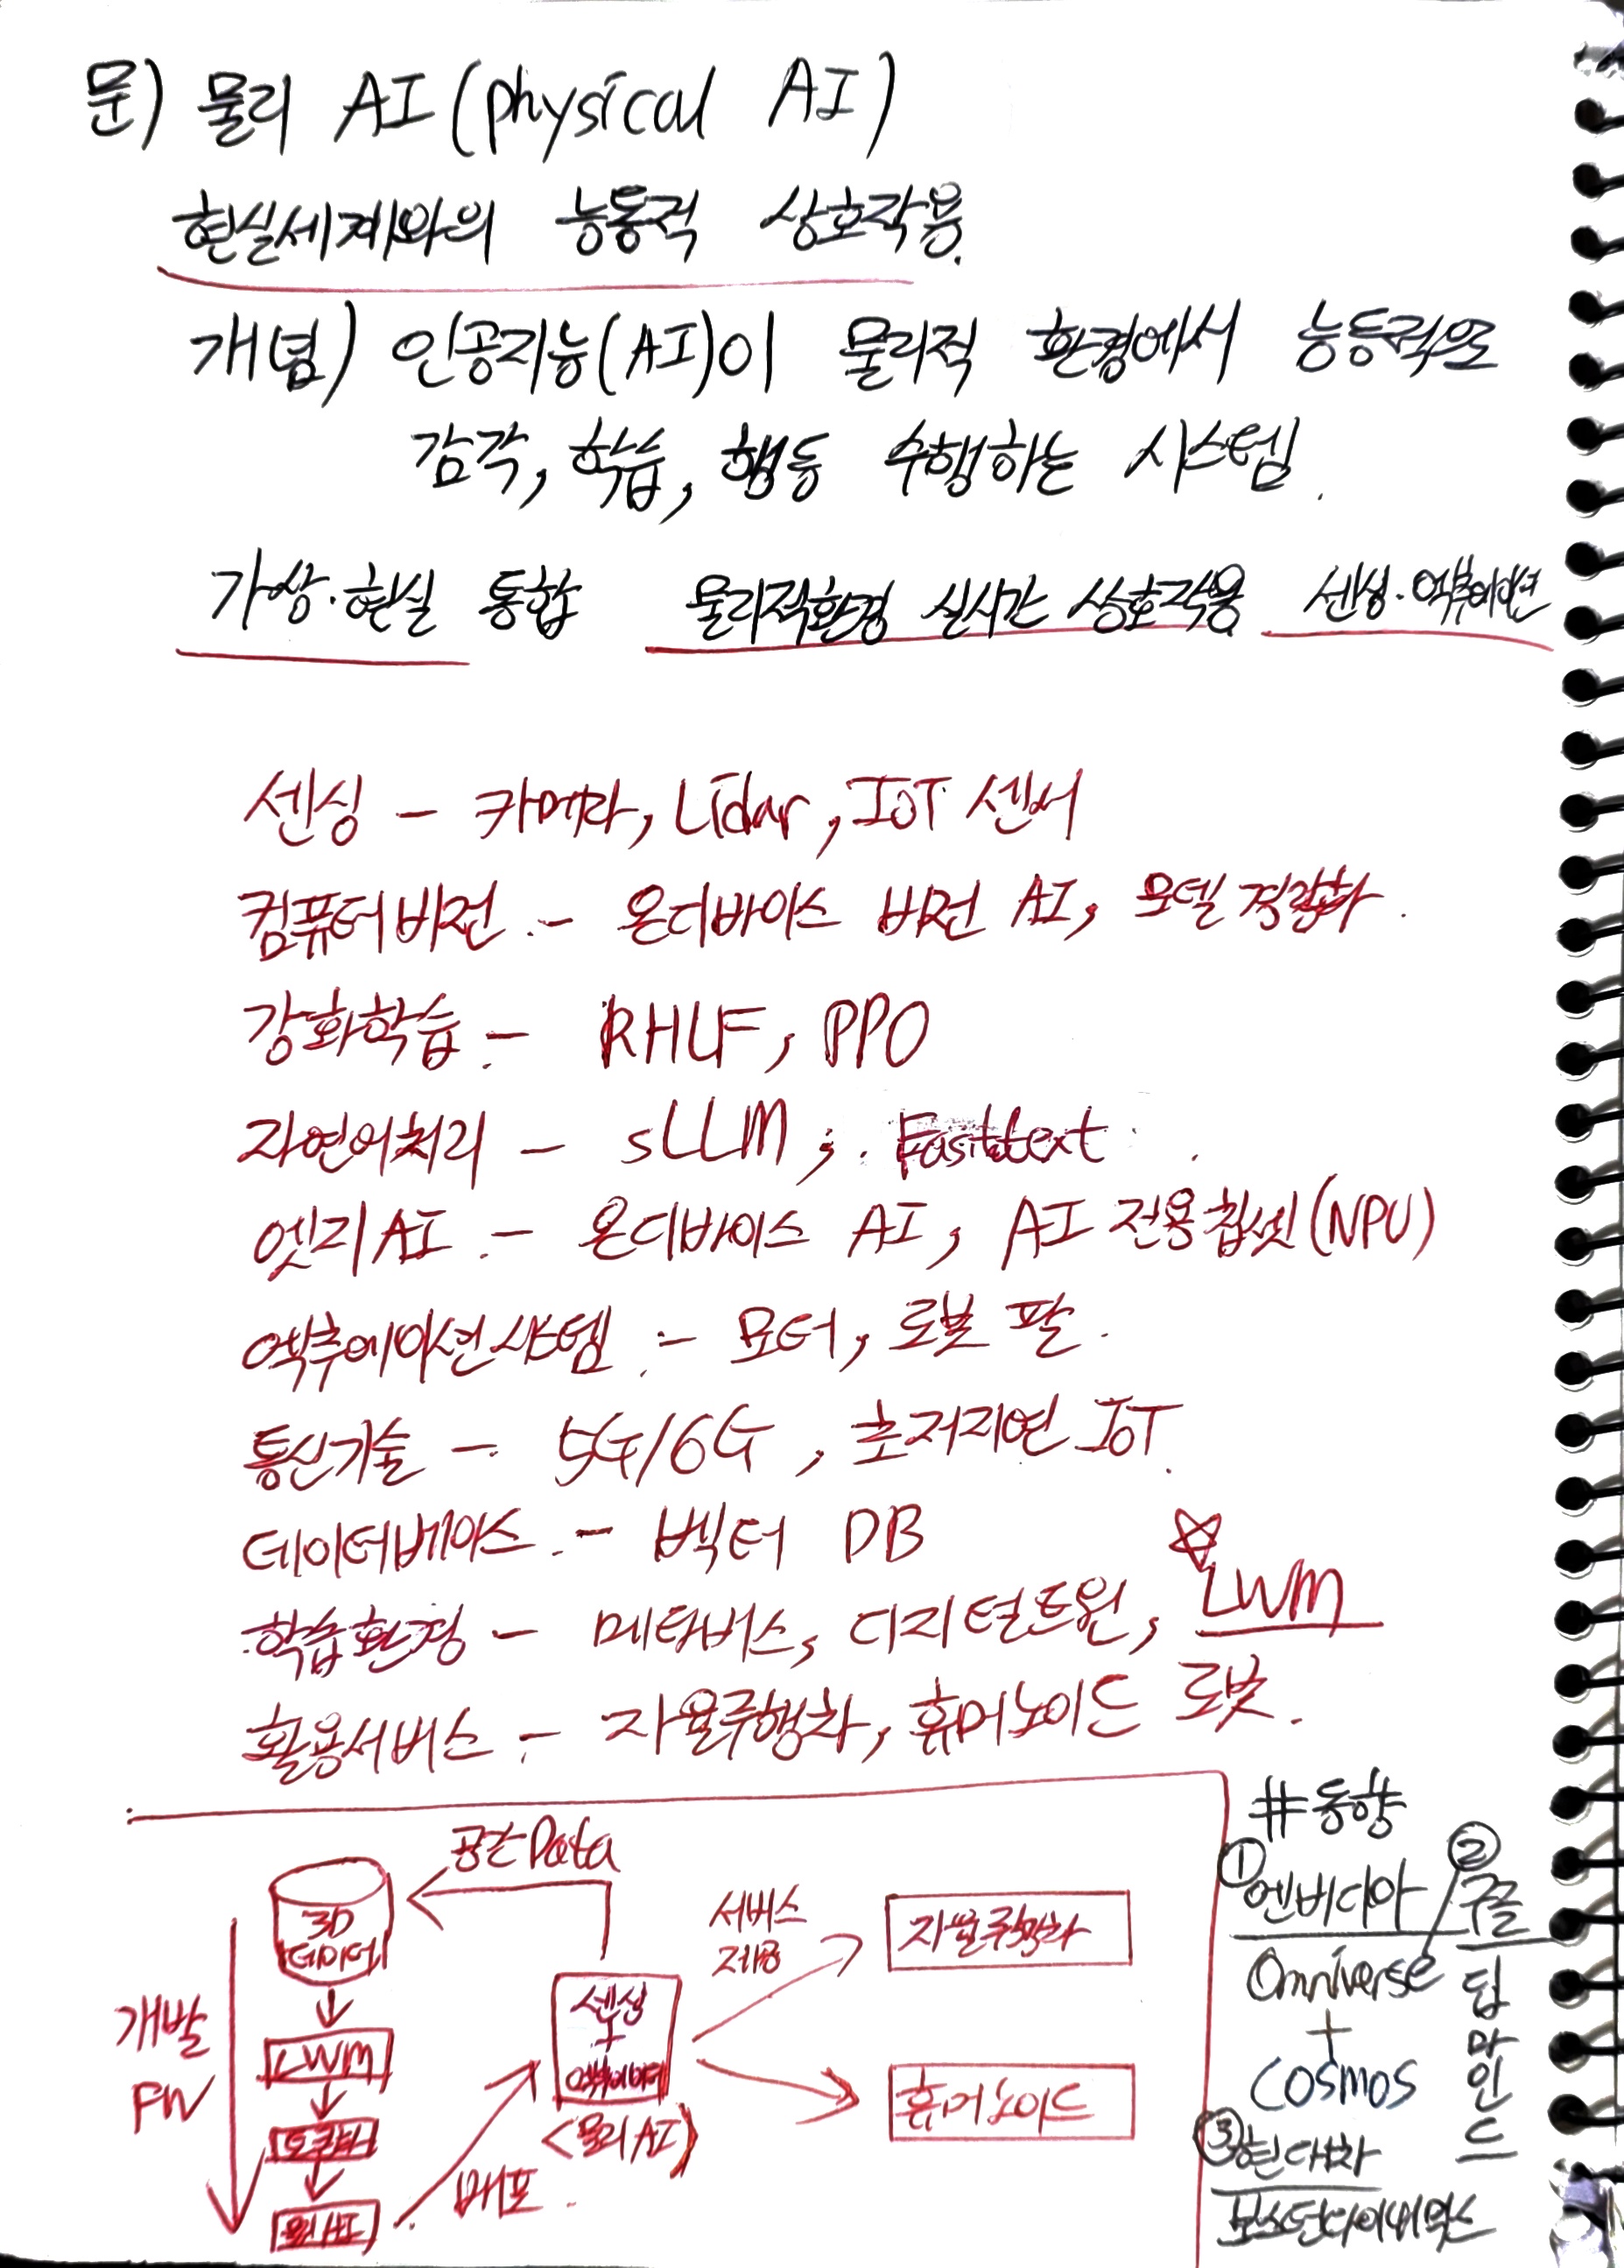 문) 물리 AI (physical AI)
현실세계와의 능동적 상호작용.
개념) 인공지능(AI)이 물리적 환경에서 능동적으로
감각, 학습, 행동 수행하는 시스템.
가상·현실 통합 물리적환경 실시간 상호작용 센싱·액츄에이션
센싱 - 카메라, Lidar, IoT 센서
컴퓨터비전 - 온디바이스 비전 AI, 모델 경량화.
강화학습 - RHLF, PPO
자연어처리 - sLLM, Fasttext
엣지AI - 온디바이스 AI, AI 전용칩셋(NPU)
액츄에이션시스템 - 모터, 로봇 팔.
통신기술 - 5G/6G, 초저지연 IoT.
데이터베이스 - 벡터 DB
학습환경 - 메타버스, 디지털트윈, ☆LWM
활용서비스 - 자율주행차, 휴머노이드 로봇.
공간 Data
3D
데이터
개발
FW
LWM
토큰화
배포.
센싱
+
액츄에이터
<물리AI>
서비스
제공
자율주행차
휴머노이드
#동향
① 엔비디아
Omniverse
+
COSMOS
② 구글
딥마인드
③ 현대차
보스턴다이내믹스